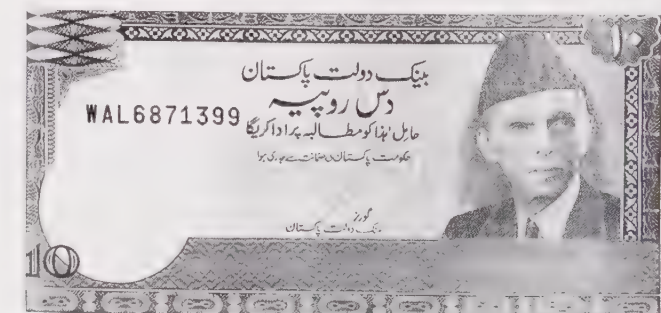 ۱۰
بینک دولت پاکستان
دس روپیہ
WAL6871399
حامل ہٰذا کو مطالبہ پر ادا کریگا
حکومت پاکستان کی ضمانت سے جاری ہوا
گورنر
بینک دولت پاکستان
10